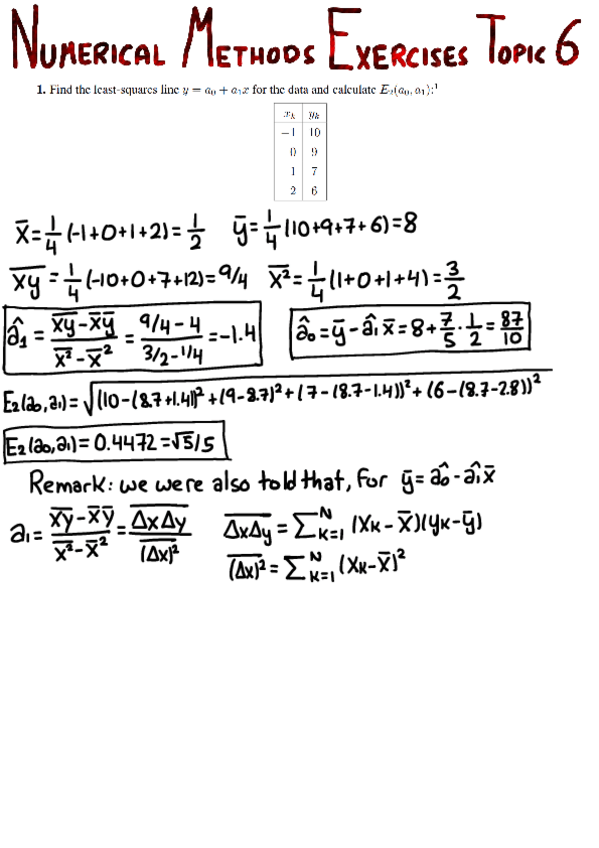 NUMERICAL METHODS EXERCISES TOPIC 6
1. Find the least-squares line y = a₀ + a₁x for the data and calculate E₂(a₀, a₁):¹
xₖ yₖ
−1 10
0 9
1 7
2 6
x̄ = 1/4 (-1+0+1+2) = 1/2   ȳ = 1/4 (10+9+7+6) = 8
x̅y̅ = 1/4 (-10+0+7+12) = 9/4   x̅²̅ = 1/4 (1+0+1+4) = 3/2
â₁ = (x̅y̅ - x̄ȳ)/(x̅²̅ - x̄²) = (9/4 - 4)/(3/2 - 1/4) = -1.4   â₀ = ȳ - â₁x̄ = 8 + 7/5 · 1/2 = 87/10
E₂(a₀,a₁) = √((10-(8.7+1.4))² + (9-8.7)² + (7-(8.7-1.4))² + (6-(8.7-2.8))²
E₂(a₀,a₁) = 0.4472 = √5/5
Remark: we were also told that, for ȳ = â₀ - â₁x̄
a₁ = (x̅y̅ - x̄ȳ)/(x̅²̅ - x̄²) = Δ̅x̅Δ̅y̅/(̅Δ̅x̅)̅²̅   Δ̅x̅Δ̅y̅ = Σ_{k=1}^{N} (xₖ - x̄)(yₖ - ȳ)
(̅Δ̅x̅)̅²̅ = Σ_{k=1}^{N} (xₖ - x̄)²